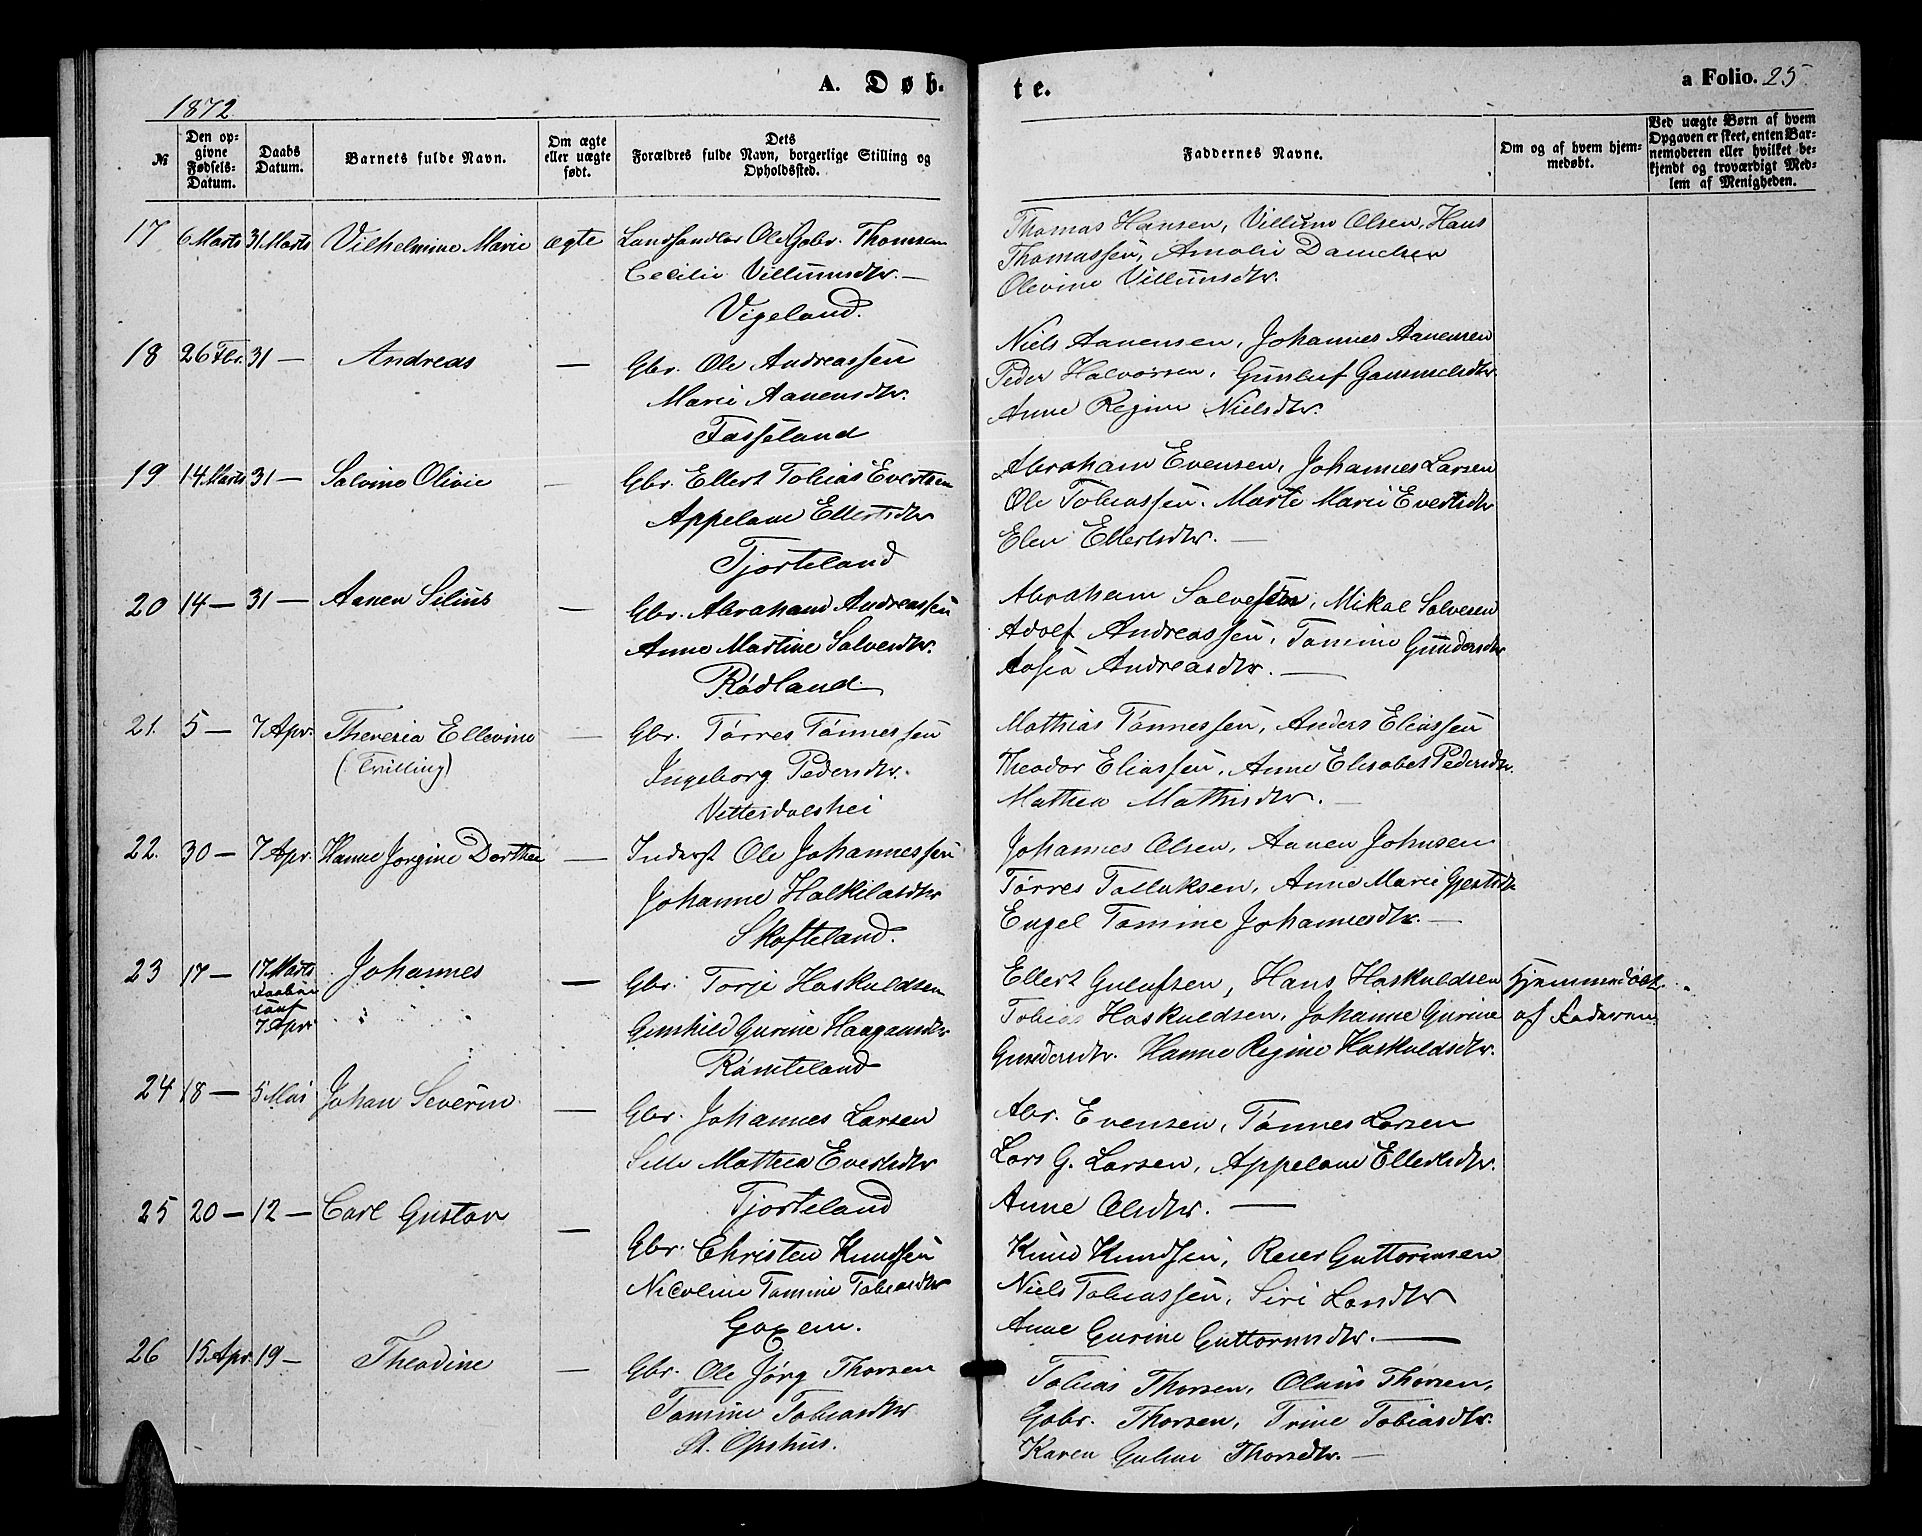 A. Døb-
te.
a Folio. 25
1872
№
Den opgivne Fødsels-Datum.
Daabs Datum.
Barnets fulde Navn.
Om ægte eller uægte født.
Dets Forældres fulde Navn, borgerlige Stilling og Opholdssted.
Faddernes Navne.
Om og af hvem hjemmedøbt.
Ved uægte Børn af hvem Opgaven er skeet, enten Barnemoderen eller hvilket bekjendt og troværdigt Medlem af Menigheden.
17 6 Marts 31 Marts Vilhelmine Marie ægte Landhandler Ole Gabr. Thomsen
Cecilie Villumsdtr. —
Vigeland.
Thomas Hansen, Villum Olsen, Hans
Thomassen, Amalie
Olevine Villumsdtr.
18 26 Fbr. 31 — Andreas — Gbr. Ole Andreassen
Marie Aanensdtr.
Fasseland
Niels Aanensen, Johannes Aanensen
Peder Halvorsen, Gunluf Gammelsdtr.
Anne Regine Nielsdtr.
19 14 Marts 31 — Salvine Olivie — Gbr. Ellert Tobias Evertsen
Appelone Ellertsdtr
Tjorteland
Abraham Evensen, Johannes Larsen
Ole Tobiassen. Marte Marie Evertsdtr
Elen Ellertsdtr. —
20 14 — 31 — Aanen Silius — Gbr. Abraham Andreassen
Anne Martine Salvesdtr.
Rødland
Abraham Salvesen, Mikal Salvesen
Adolf Andreassen, Tomine Gundersdtr
Aasia Andreasdtr. —
21. 5 — 7 Apr. Theresia Ellevine — Gbr. Tørres Tønnessen
(Tvilling)
Ingeborg Pedersdtr.
Vittersdalshei
Mathias Tønnessen, Anders Eliassen
Theodor Eliassen, Anne Elisabet Pedersdtr.
Mathea Mathisdtr. —
22. 30 — 7 Apr. Hanne Jørgine Dorthea — Inderst Ole Johannessen
Johanne Halkilasdtr
Skofteland.
Johannes Olsen, Aanen Johnsen
Tørres Tolluksen, Anne Marie
Engel Tomine Johannesdtr. —
23 17 — 17 Marts Johannes — Gbr. Torje Haskuldsen
Daaben
7 Apr.
Gunhild Gurine Haagansdtr
Rømteland
Ellert Gulufsen, Hans Haskuldsen
Tobias Haskuldsen, Johanne Gurine
Gundersdtr. Hanne Regine Haskuldsdtr.
Hjemmedøbt
af Faderen
24 18 — 5 Mai Johan Severin — Gbr. Johannes Larsen
Sille Mathea Evertsdtr
Tjorteland
Abr. Evensen, Tønnes Larsen
Lars G. Larsen, Appelone Ellertsdtr.
Anne Olsdtr. —
25 20 — 12 — Carl Gustav — Gbr. Christen Knudsen
Nicoline Tomine Tobiasdtr
Goxem.
Knud Knudsen, Reier Guttormsen
Niels Tobiassen, Siri Larsdtr
Anne Gurine Guttormsdtr. —
26 15 Apr. 19 — Theodine — Gbr. Ole Jørg Thorsen
Tomine Tobiasdtr
St. Opshus.
Tobias Thorsen, Olaus Thorsen,
Gabr. Thorsen, Trine Tobiasdtr.
Karen Guline Thorsdtr. —